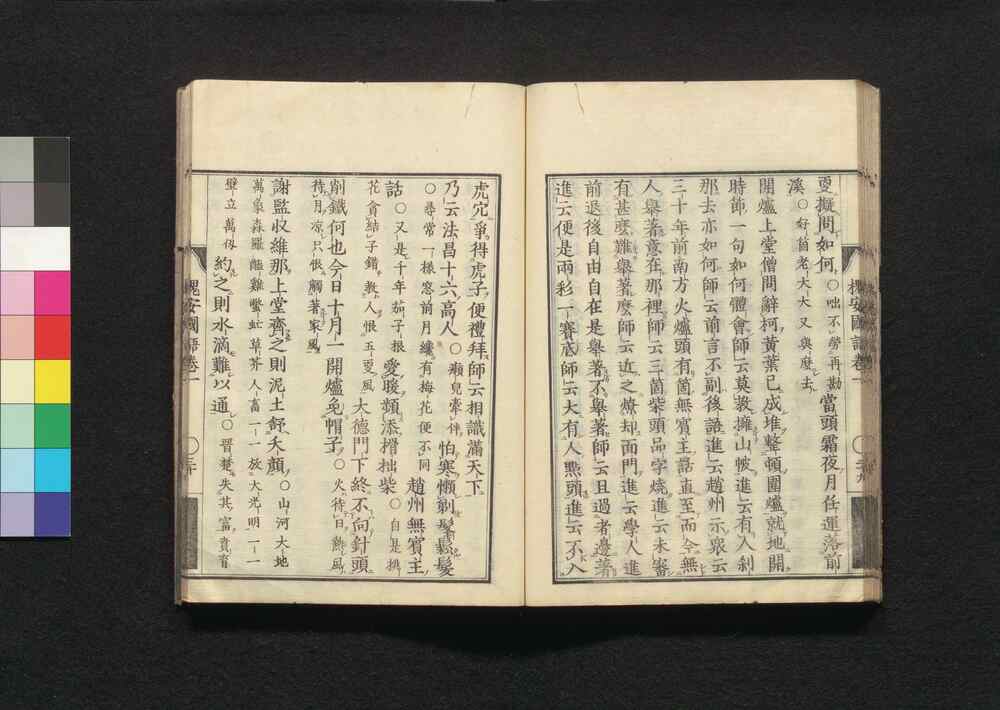 更擬問如何○咄不勞再勘當頭霜夜月任運落前
溪○好箇老大大又與麼去
開爐上堂僧問辭柯黃葉已成堆整頓圍爐就地開
時節一句如何體會師云莫教擁山帔進云有人刹
那去亦如何師云前言不副後語進云趙州示衆云
三十年前南方火爐頭有箇無賓主話直至而今無
人舉著意在那裡師云三箇柴頭品字燒進云未審
有甚麼難舉著麼師云近之燎却面門進云學人進
前退後自由自在是舉著不舉著師云且過者邊著
進云便是兩彩一賽底師云大有人點頭進云不入
槐安國語卷一
虎穴爭得虎子便禮拜師云相識滿天下
乃云法昌十六高人○癩兒牽伴怕寒懶剃髼鬆髮
○尋常一樣窓前月纔有梅花便不同趙州無賓主
話○又是千年茄子根愛暖頻添榾拙柴○自是桃
花貪結子錯教人恨五更風大德門下終不向針頭
削鐵何也今日十月一開爐免帽子○火待日熱風
待月涼只恨觸著家風
謝監收維那上堂齊之則泥土舒夭顏○山河大地
萬象森羅醯雞蠛虻草芥人畜一一放大光明一一
壁立萬仭約之則水滴難以通○晋楚失其富賁育
槐安國語卷一